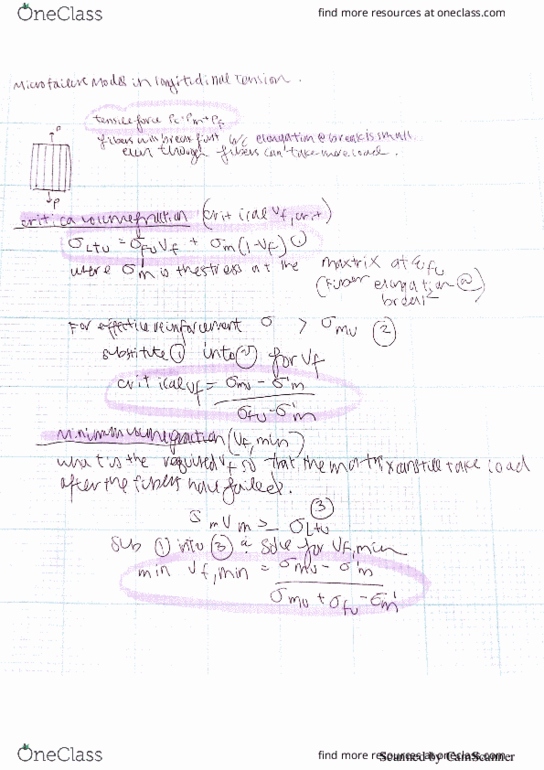 OneClass
find more resources at oneclass.com
Microfailure Model in longitidinal tension.
tensile force Pc=Pm+Pf
fibers will break first b/c elongation @ break is small.
even though fibers can't take more load.
P
P
critical volume fraction (critical Vf,crit)
σLtu = σfu Vf + σ'm (1-Vf) ①
where σ'm is the stress at the maxtrix at εfu
(Fiber elongation @
break
For effective reinforcement σ > σmu ②
substitute ① into ② for Vf
critical Vf = σmu - σ'm
σfu - σ'm
Minimum volume fraction (Vf,min)
what is the required Vf so that the matrix can still take load
after the fibers have failed.
③
SmVm >= σLtu
Sub ① into ③ & solve for Vf,min
min Vf,min = σmu - σ'm
σmu + σfu - σ'm
OneClass
find more resources at oneclass.com
Scanned by CamScanner